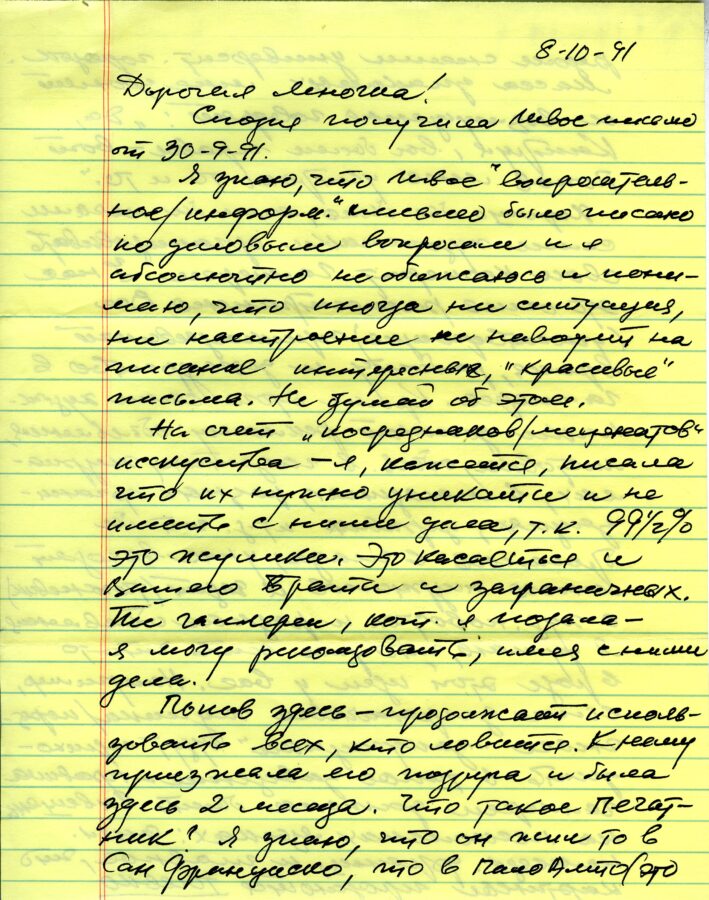 8-10-91
Дорогая Яночка!
Сегодня получила твое письмо
от 30-9-91.
Я знаю, что твое "вопроситель-
ное/информ." письмо было писано
по деловым вопросам и я
абсолютно не обижаюсь и пони-
маю, что иногда ни ситуация,
ни настроение не наводит на
писание интересных, "красивых"
письма. Не думай об этом.
На счет "посредников/меценатов"
исскуства – я, кажется, писала
что их нужно уникать и не
иметь с ними дела, т.к. 99½%
это жулики. Это касаеться и
Вашего брата и заграничных.
Те галлереи, кот. я подала –
я могу рекомдовать, имея с ними
дела.
здесь – продолжает исполь-
зовать всех, кто ловится. К нему
приезжала его подруга и была
здесь 2 месяца. Что такое Печат-
ник? Я знаю, что он жил то в
Сан Франциско, что в Пало Алто (это